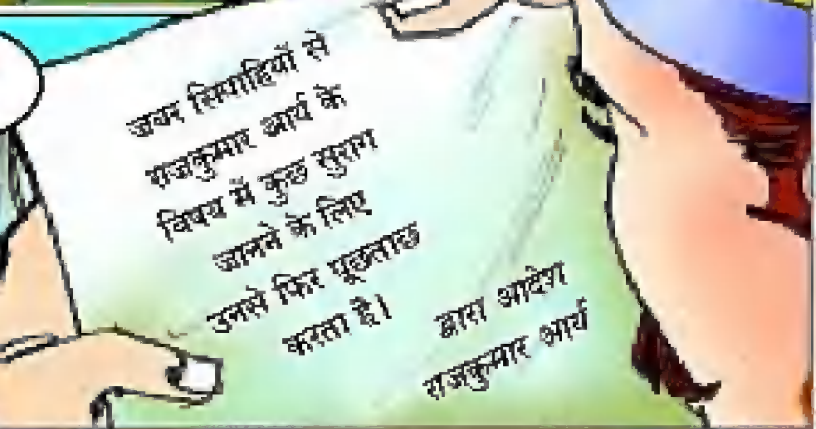 जवर सिपाहियों से
राजकुमार आर्य के
विषय में कुछ सुराग
जानने के लिए
उनसे फिर पूछताछ
करता है।
द्वारा आदेश
राजकुमार आर्य